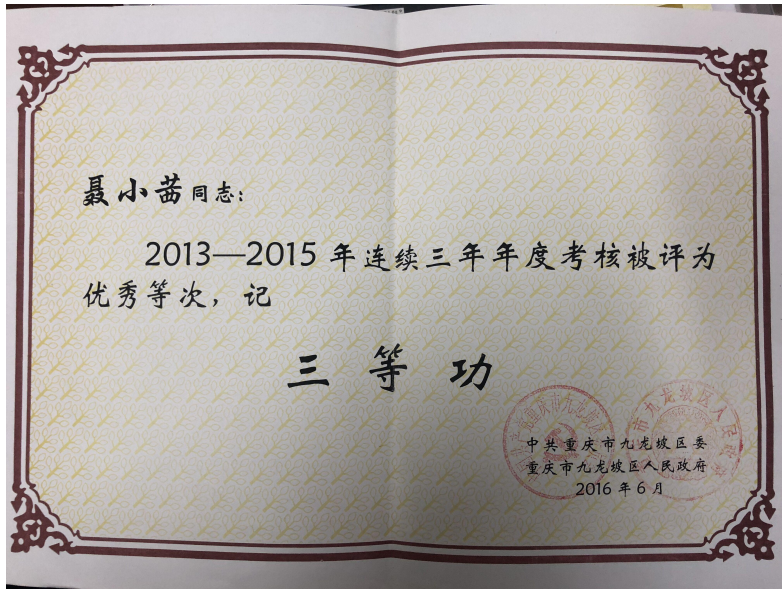 聂小茜同志：
2013—2015年连续三年年度考核被评为
优秀等次，记
三等功
中共重庆市九龙坡区委
重庆市九龙坡区人民政府
2016年6月